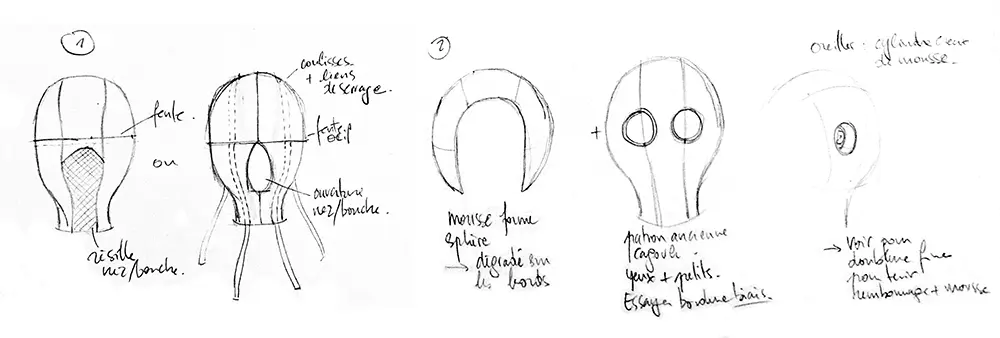 1
fente.
ou
résille
nez/bouche.
coulisses
+ liens
de serrage.
fente
ouverture
nez/bouche.
2
mousse forme
sphère
→ dégradé sur
les bords
+
patron ancienne
cagoule.
yeux + petits.
Essayer bordure biais.
oreilles : cylindre creux
de mousse.
→ voir pour
doublure fine
pour tenir
rembourrage + mousse